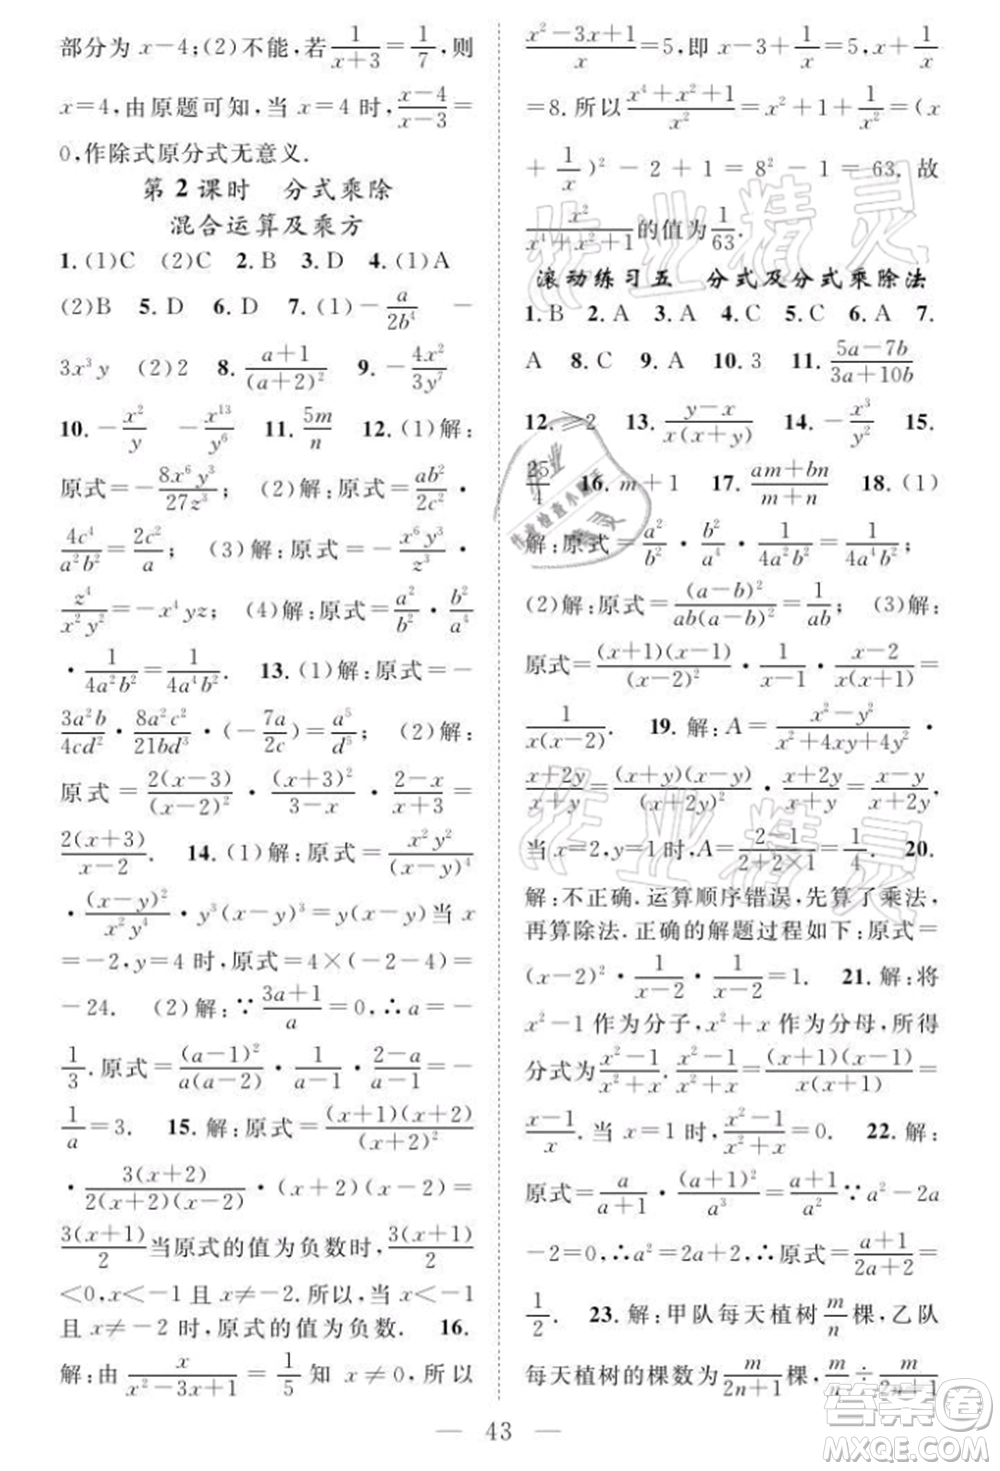 部分为 x-4;(2)不能,若 1/(x+3) = 1/7,则
x=4,由原题可知,当 x=4 时, (x-4)/(x-3) =
0,作除式原分式无意义.
第 2 课时 分式乘除
混合运算及乘方
1.(1)C (2)C 2.B 3.D 4.(1)A
(2)B 5.D 6.D 7.(1)-a/(2b⁴) -
3x³y (2)2 8. (a+1)/(a+2)² 9.-4x²/(3y⁷)
10.-x²/y -x¹³/y⁶ 11. 5m/n 12.(1)解:
原式=-8x⁶y³/(27z³); (2)解:原式=ab²/(2c²)·
4c⁴/(a²b²)=2c²/a; (3)解:原式=-x⁶y³/z³·
z⁴/(x²y²)=-x⁴yz; (4)解:原式=a²/b²·b²/a⁴
·1/(4a²b²)=1/(4a⁴b²). 13.(1)解:原式=-
3a²b/(4cd²)·8a²c²/(21bd³)·(-7a/(2c))=a⁵/d⁵; (2)解:
原式=2(x-3)/(x-2)²·(x+3)/(3-x)·(2-x)/1=
2(x+3)/(x-2). 14.(1)解:原式=x²y²/(x-y)⁴
·(x-y)²/(x²y)·y³(x-y)³=y(x-y)当 x
=-2,y=4 时,原式=4×(-2-4)=
-24. (2)解:∵(3a+1)/a=0,∴a=-
1/3.原式=(a-1)²/(a(a-2))·1/(a-1)·(2-a)/(a-1)=-
1/a=3. 15.解:原式=(x+1)(x+2)/(x+2)²
·3(x+2)/(2(x+2)(x-2))·(x+2)(x-2)=
3(x+1)/2当原式的值为负数时,3(x+1)/2
<0,x<-1 且 x≠-2.所以,当 x<-1
且 x≠-2 时,原式的值为负数. 16.
解:由 x/(x²-3x+1)=1/5 知 x≠0,所以
(x²-3x+1)/x=5,即 x-3+1/x=5,x+1/x
=8.所以(x⁴+x²+1)/x²=x²+1+1/x²=(x
+1/x)²-1=8²-1=63.故
x²/(x⁴+x²+1)的值为1/63.
滚动练习五 分式及分式乘除法
1.B 2.A 3.A 4.C 5.C 6.A 7.
A 8.C 9.A 10.3 11. (5a-7b)/(3a+10b)
12.≥2 13. (y-x)/(x(x+y)) 14.-x³/y² 15.
25/4 16.m+1 17. (am+bn)/(m+n) 18.(1)
解:原式=a²/b²·b²/a⁴·1/(4a²b²)=1/(4a⁴b²);
(2)解:原式=(a-b)²/(ab(a-b)²)=1/ab; (3)解:
原式=(x+1)(x-1)/(x-2)²·1/(x-1)·(x-2)/(x(x+1))=
1/(x(x-2)). 19.解:A=(x²-y²)/(x²+4xy+4y²)·
(x+2y)/(x+y)=(x+y)(x-y)/(x+2y)²·(x+2y)/(x+y)=(x-y)/(x+2y).
当 x=2,y=1时,A=(2-1)/(2+2×1)=1/4. 20.
解:不正确.运算顺序错误,先算了乘法,
再算除法.正确的解题过程如下:原式=
(x-2)²·1/(x-2)·1/(x-2)=1. 21.解:将
x²-1 作为分子,x²+x 作为分母,所得
分式为(x²-1)/(x²+x).(x²-1)/(x²+x)=(x+1)(x-1)/(x(x+1))=
(x-1)/x.当 x=1 时,(x²-1)/(x²+x)=0. 22.解:
原式=a/(a+1)·(a+1)²/a³=(a+1)/a²∵a²-2a
-2=0,∴a²=2a+2,∴原式=(a+1)/(2a+2)=
1/2. 23.解:甲队每天植树m/n棵,乙队
每天植树的棵数为m/(2n+1)棵,m/n÷m/(2n+1)
43
作业精灵
作业精灵
答案圈
MXQE.COM